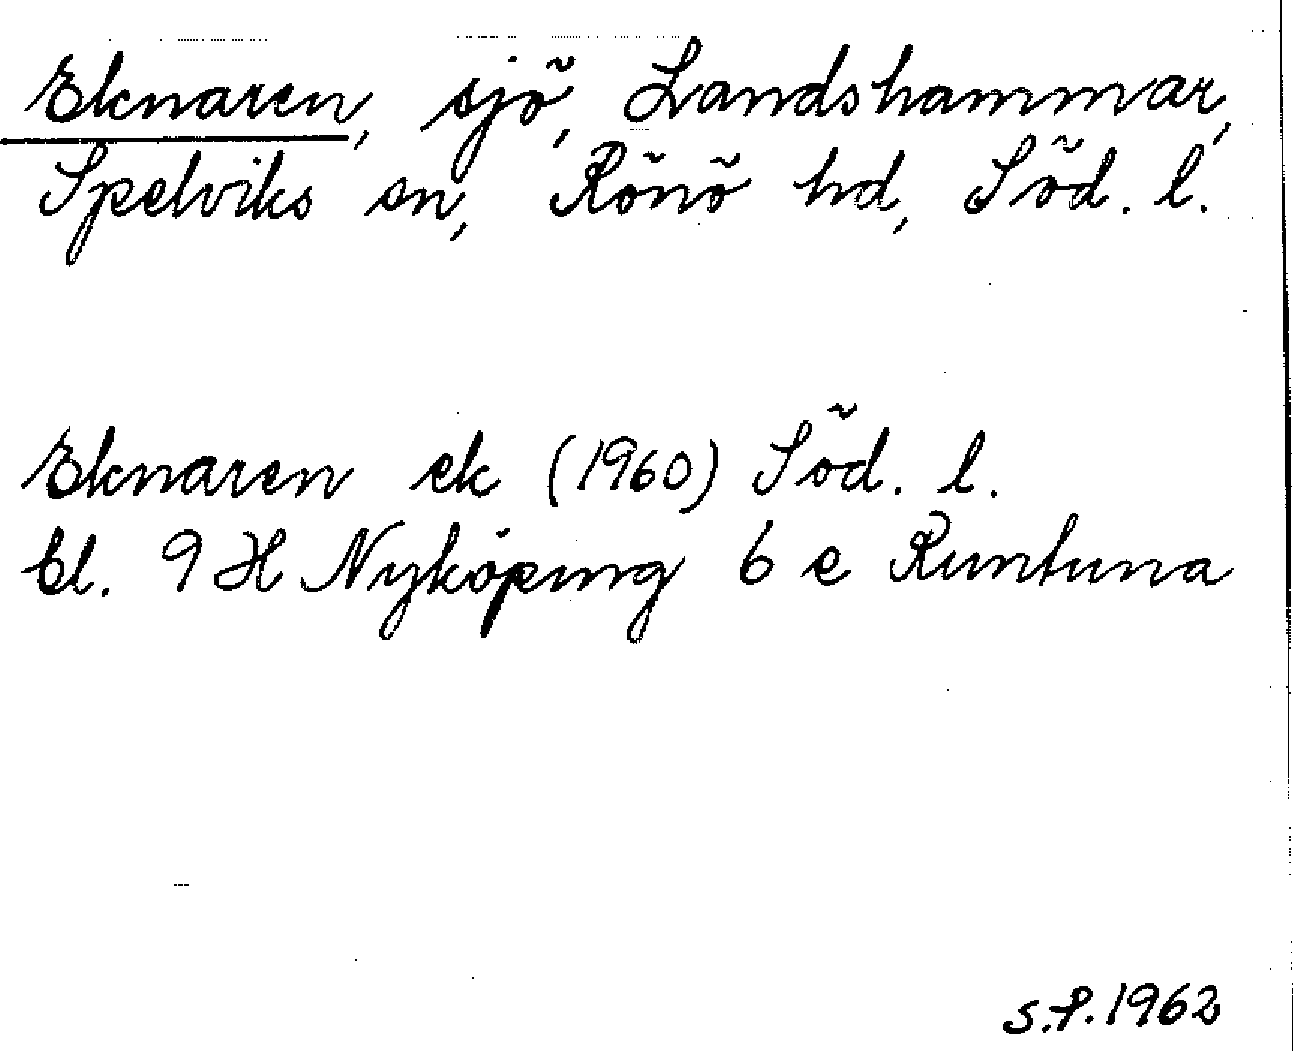 Eknaren, sjö, Landshammar,
Spelviks sn, Rönö hd, Söd. l.
Eknaren ek (1960) Söd. l.
bl. 9 H Nyköping 6 e Runtuna
S.P. 1962